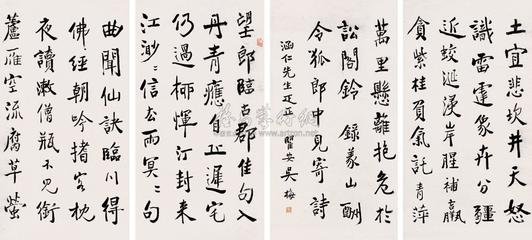 望郎臨古郡佳句入
丹青應自丘遲宅
仍過柳惲汀封來
江渺〻信去雨冥〻句
曲聞仙訣臨川得
佛經朝吟搘客枕
夜讀漱僧瓶不見銜
蘆雁空流腐草螢
土宜悲坎井天怒
識雷霆象卉分疆
近蛟涎浸岸腥補羸
貪紫桂負氣託青萍
萬里懸離抱危於
訟閣鈴 錄義山酬
令狐郎中見寄詩
涵仁先生疋正 瞿安吳梅